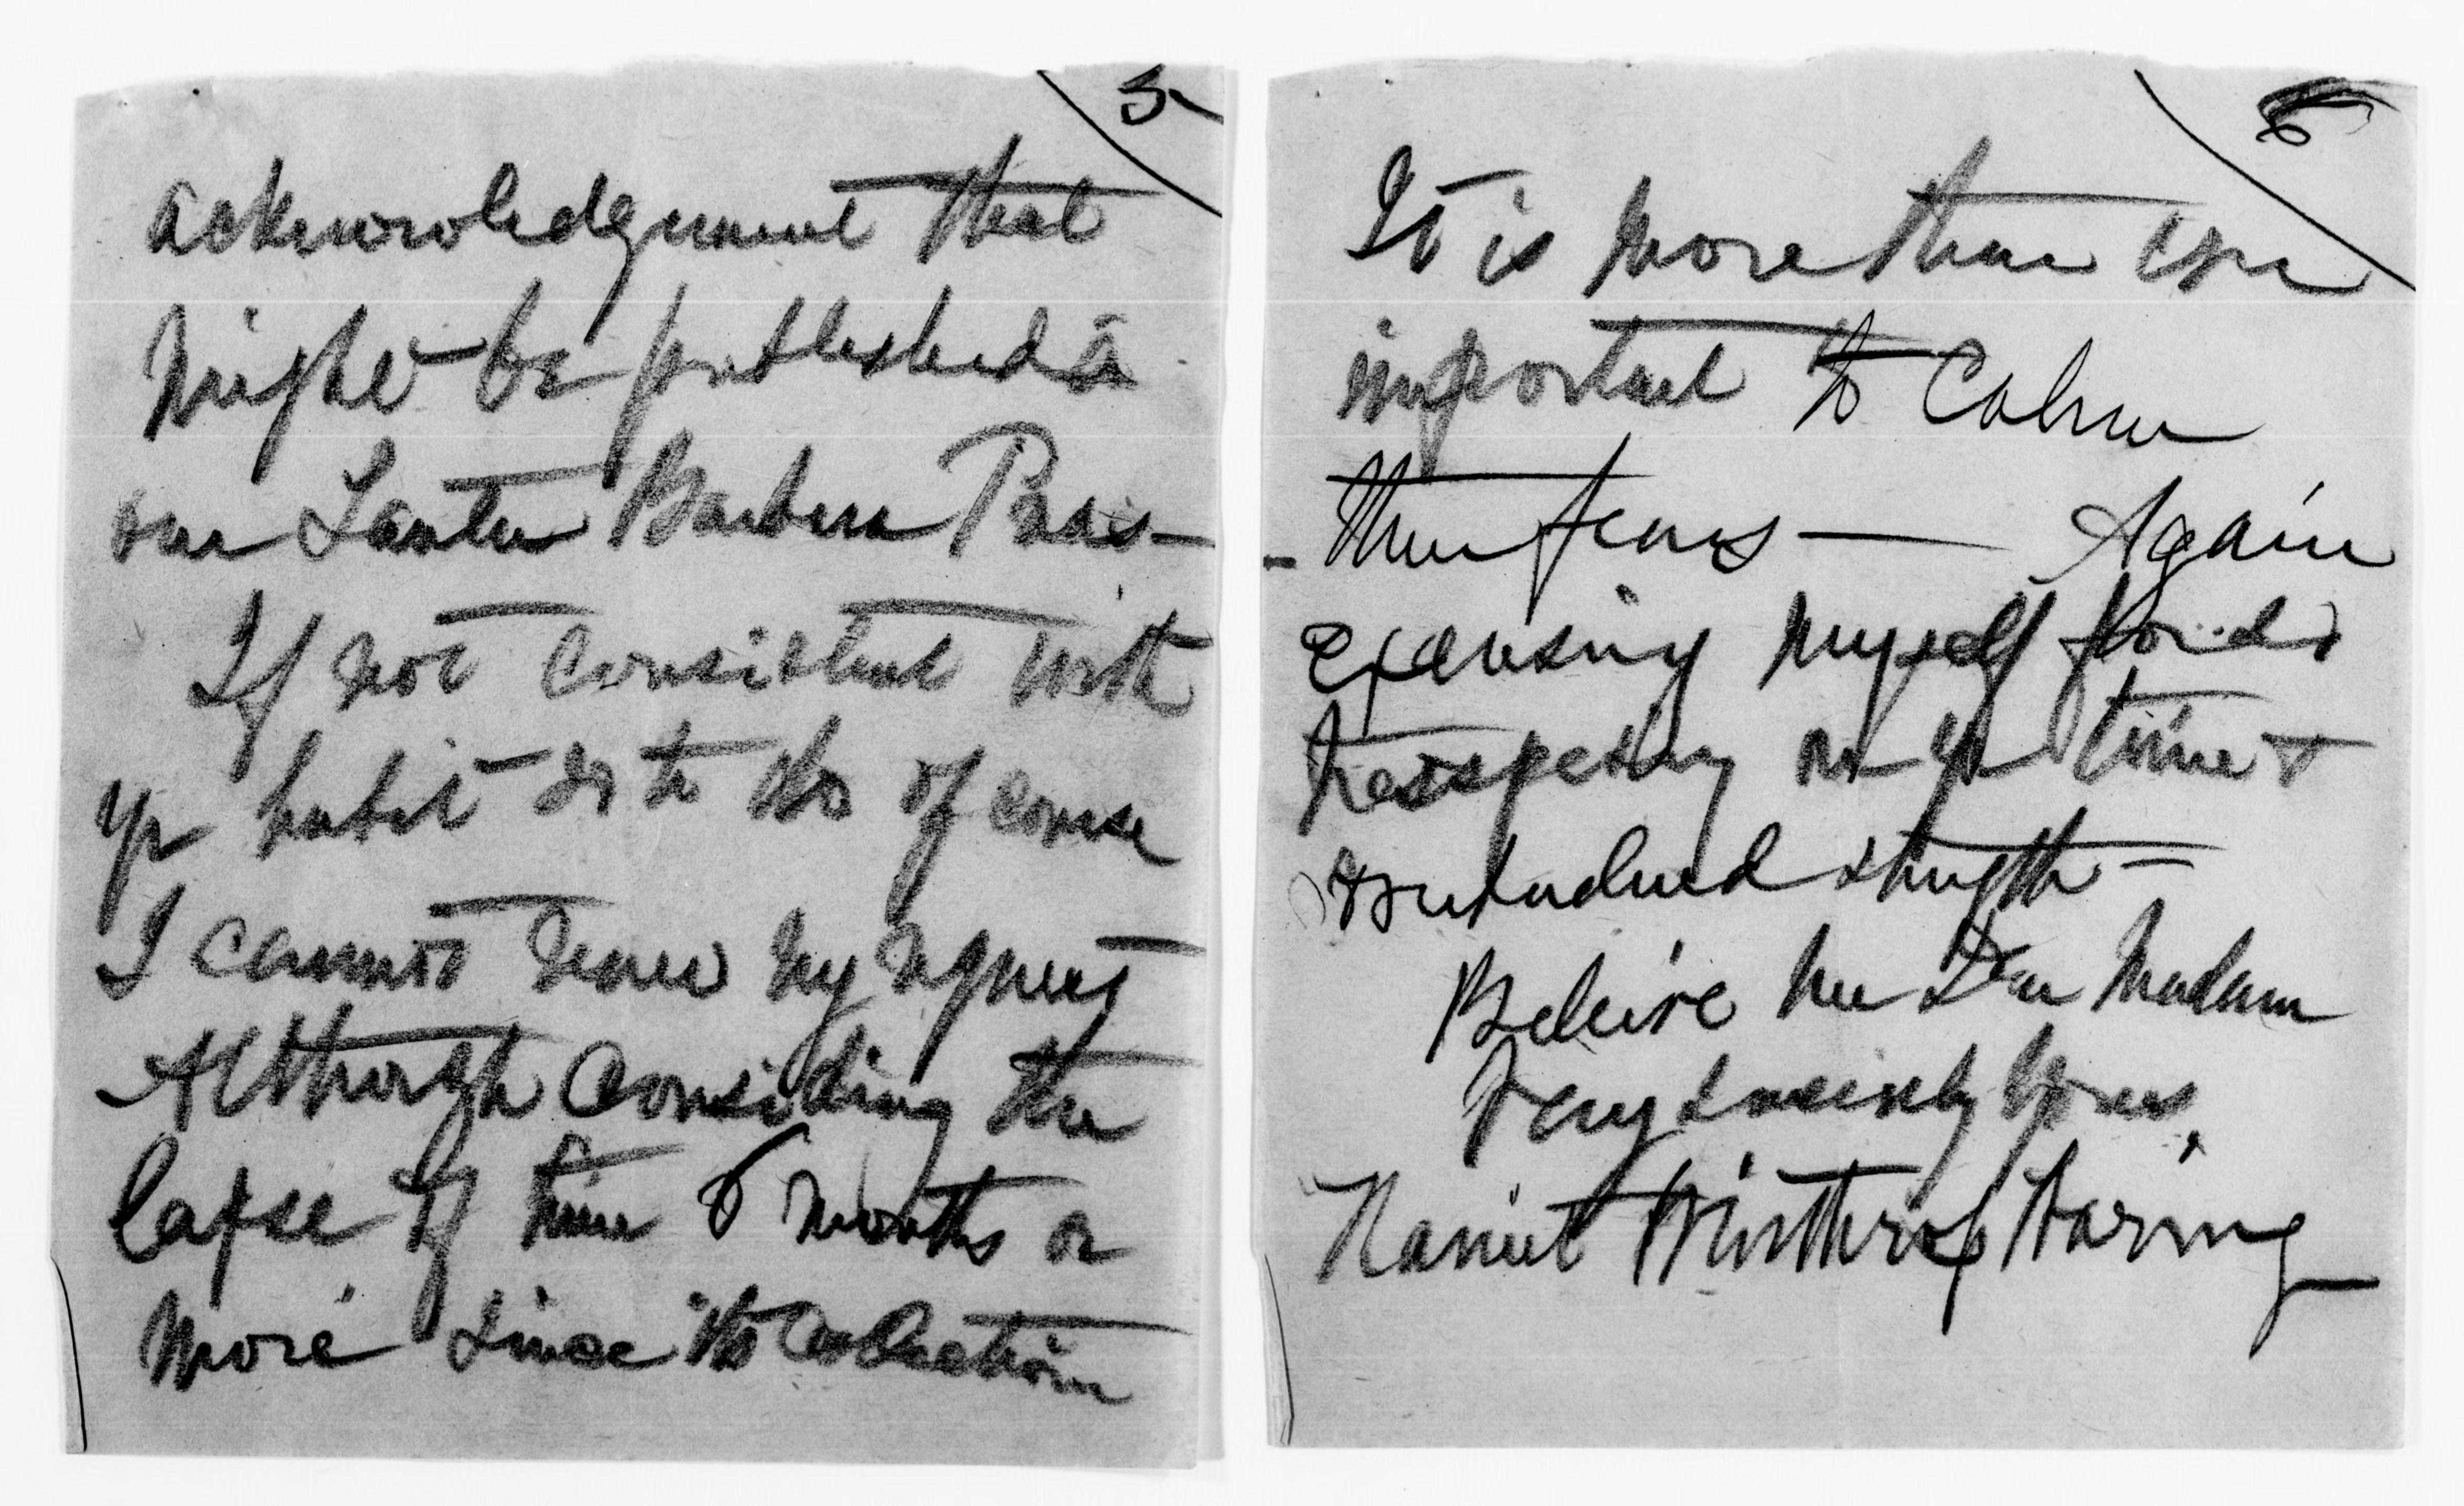 5
acknowledgement that
might be published in
our Santa Barbara Press—
If not consistent with
yr habit so to do of course
I cannot renew my request
Although considering the
lapse of time 6 months or
more since the collection
6
It is more than ever
important to calm
their fears — Again
excusing myself for
trespassing on yr time &
overburdened strength —
Believe me Dear Madam
Very sincerely yours,
Harriet Winthrop Waring